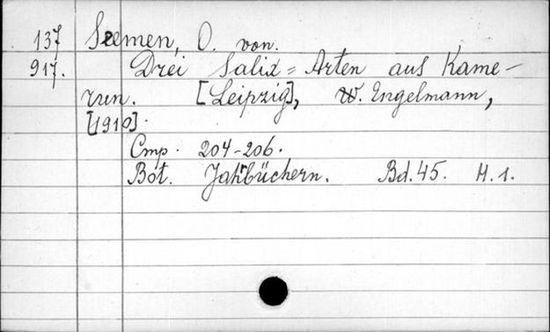 137 Seemen, O. von.
917. Drei Salix = Arten aus Kame-
run. [Leipzig], W. Engelmann,
[1910].
Cmp. 204-206.
Bot. Jahrbüchern. Bd. 45. H. 1.